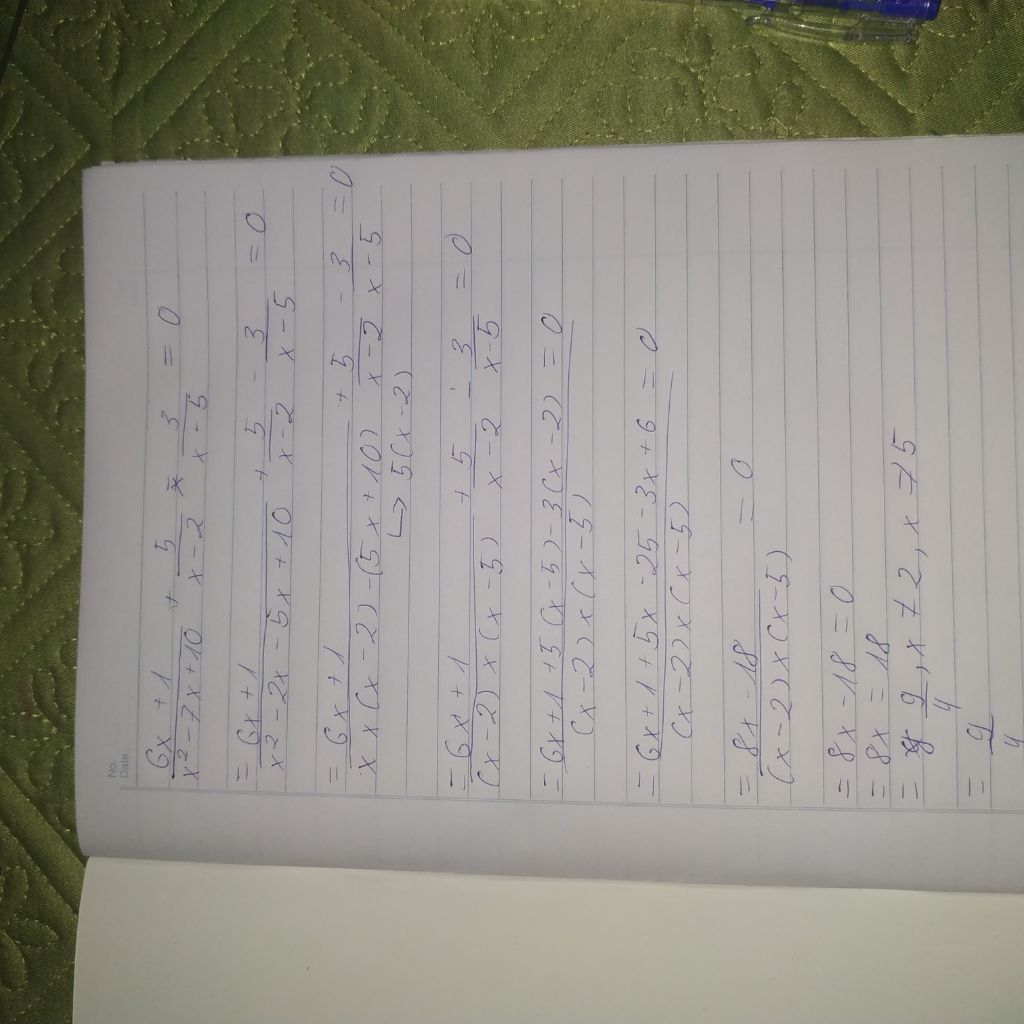 No.
Date
6x + 1 / x² - 7x + 10 + 5 / x - 2 - 3 / x - 5 = 0
= 6x + 1 / x² - 2x - 5x + 10 + 5 / x - 2 - 3 / x - 5 = 0
= 6x + 1 / x x (x - 2) - (5x + 10) + 5 / x - 2 - 3 / x - 5 = 0
↳ 5(x - 2)
= 6x + 1 / (x - 2) x (x - 5) + 5 / x - 2 - 3 / x - 5 = 0
= 6x + 1 + 5(x - 5) - 3(x - 2) / (x - 2) x (x - 5) = 0
= 6x + 1 + 5x - 25 - 3x + 6 / (x - 2) x (x - 5) = 0
= 8x - 18 / (x - 2) x (x - 5) = 0
= 8x - 18 = 0
= 8x = 18
= 9 / 4, x ≠ 2, x ≠ 5
= 9 / 4